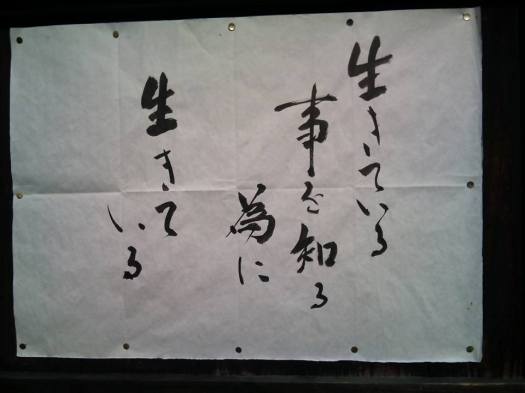 生きている
事を知る
為に
生きて
いる